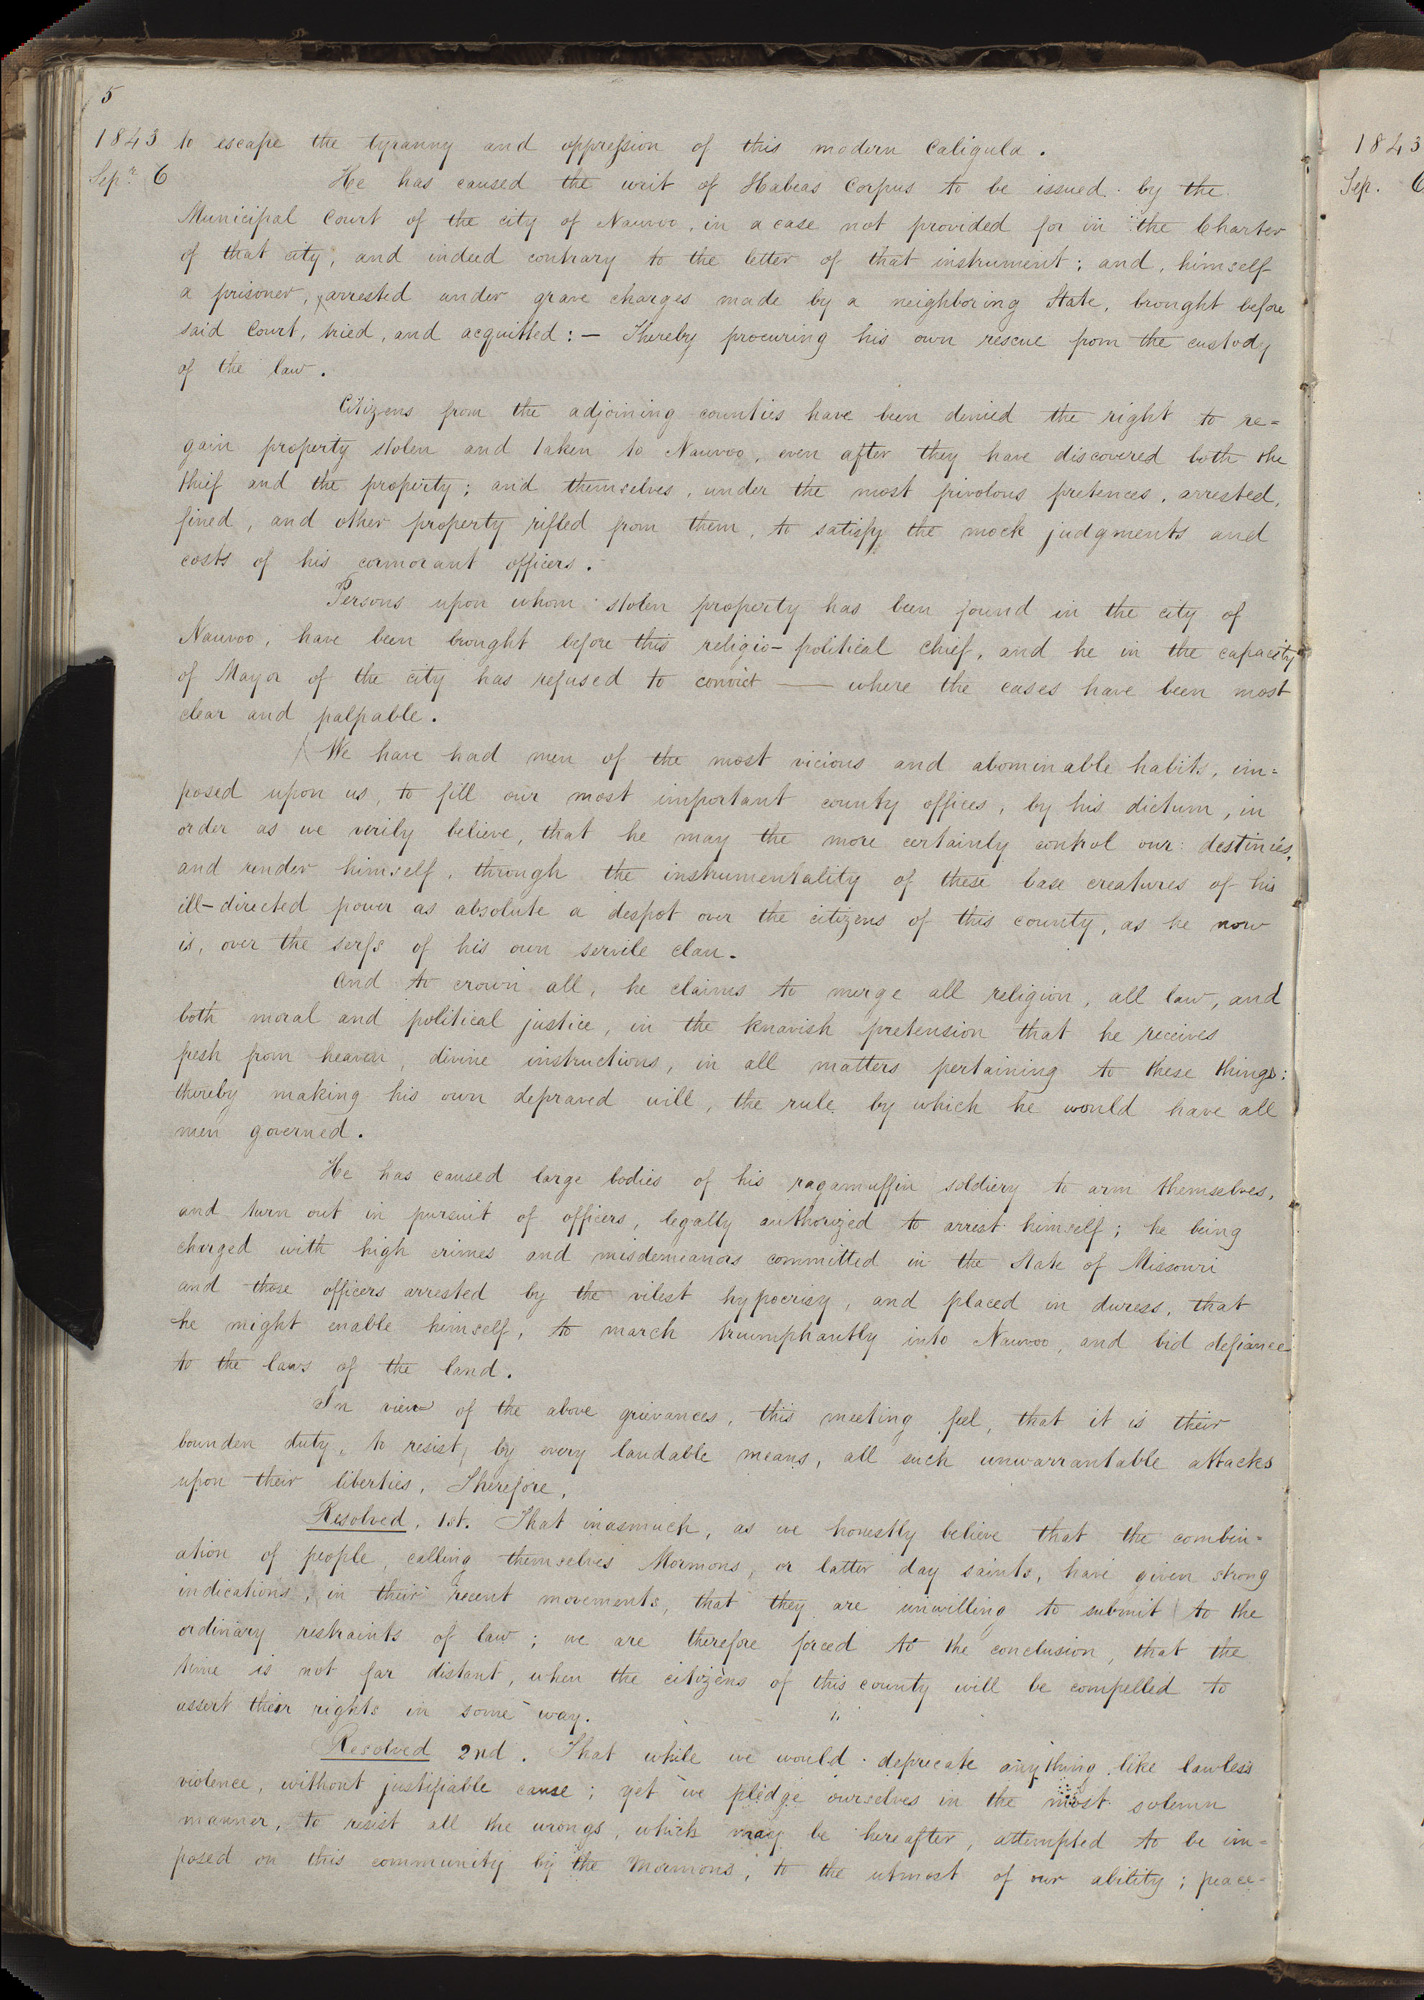 5
1843 to escape the tyranny and oppression of this modern Caligula.
Sepr. 6 He has caused the writ of Habeas Corpus to be issued by the
Municipal Court of the city of Nauvoo, in a case not provided for in the Charter
of that city, and indeed contrary to the letter of that instrument; and, himself
a prisoner, arrested under grave charges made by a neighboring State, brought before
said Court, tried, and acquitted:— Thereby procuring his own rescue from the custody
of the law.
Citizens from the adjoining counties have been denied the right to re=
gain property stolen and taken to Nauvoo, even after they have discovered both the
thief and the property; and themselves, under the most frivolous pretences, arrested,
fined, and other property rifled from them, to satisfy the mock judgments and
costs of his cormorant officers.
Persons upon whom stolen property has been found in the city of
Nauvoo, have been brought before this religio-political chief, and he in the capacity
of Mayor of the city has refused to convict — where the cases have been most
clear and palpable.
We have had men of the most vicious and abominable habits, im=
posed upon us, to fill our most important county offices, by his dictum, in
order as we verily believe, that he may the more certainly control our destinies,
and render himself, through the instrumentality of these base creatures of his
ill-directed power as absolute a despot over the citizens of this county, as he now
is, over the serfs of his own servile clan.
And to crown all, he claims to merge all religion, all law, and
both moral and political justice, in the knavish pretension that he receives
fresh from heaven, divine instructions, in all matters pertaining to these things:
thereby making his own depraved will, the rule by which he would have all
men governed.
He has caused large bodies of his ragamuffin soldiery to arm themselves,
and turn out in pursuit of officers, legally authorized to arrest himself; he being
charged with high crimes and misdemeanors committed in the State of Missouri
and those officers arrested by the vilest hypocrisy, and placed in duress, that
he might enable himself, to march triumphantly into Nauvoo, and bid defiance
to the laws of the land.
In view of the above grievances, this meeting feel, that it is their
bounden duty, to resist, by every laudable means, all such unwarrantable attacks
upon their liberties, Therefore,
Resolved, 1st. That inasmuch, as we honestly believe that the combin=
ation of people, calling themselves Mormons, or latter day saints, have given strong
indications, in their recent movements, that they are unwilling to submit to the
ordinary restraints of law; we are therefore forced to the conclusion, that the
time is not far distant, when the citizens of this county will be compelled to
assert their rights in some way.
Resolved 2nd. That while we would deprecate anything like lawless
violence, without justifiable cause; yet we pledge ourselves in the most solemn
manner, to resist all the wrongs, which may be hereafter, attempted to be im=
posed on this community by the Mormons, to the utmost of our ability; peace=
1843
Sep. 6